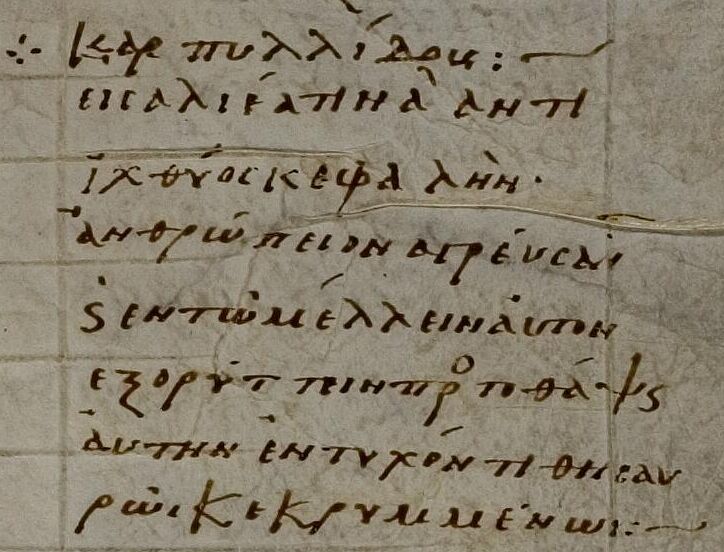 ⁘ Καρπυλλίδου :—
εις αλιέα τινὰ αντι
ἰχθύος κεφαλὴν·
ἀνθρώπειον αγρέυσαν
ϛ εν τῶ μέλλειν ἀυτον
εξορύττειν προ το θάψϛ
ἀυτὴν ἐντυχόντι θησαυ
ρῶι κεκρυμμένωι :—